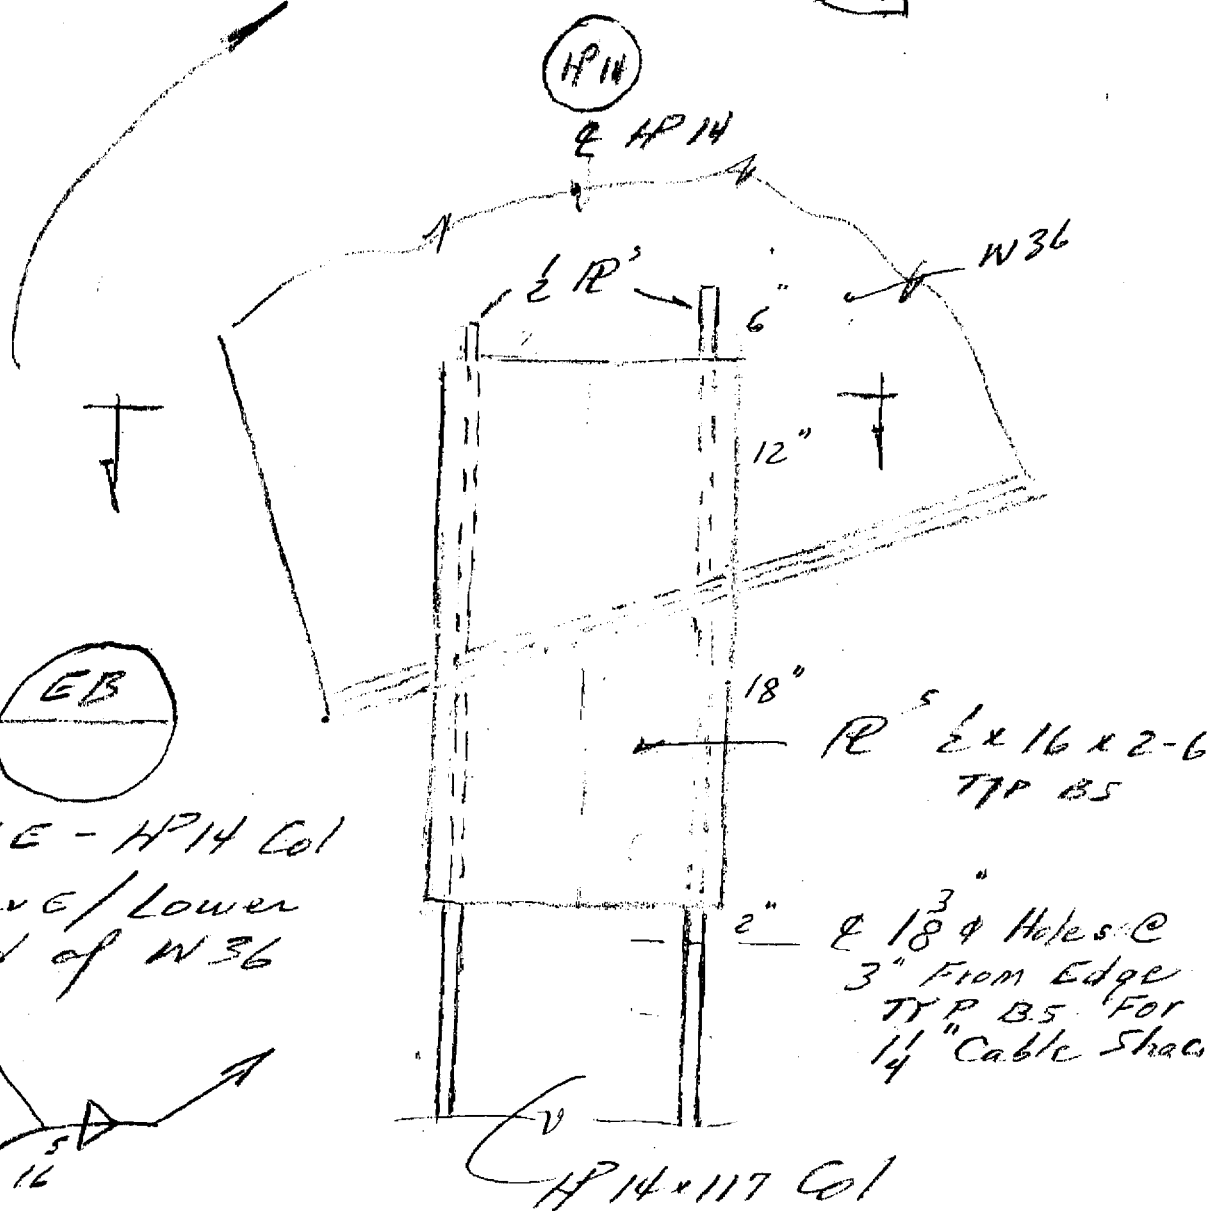 HP 14
℄ HP 14
W 36
½ PLs
6"
12"
18"
EB
PLs ½ x 16 x 2-6
TYP BS
E - HP 14 Col
/ Lower
of W 36
2"
℄ 1 3/8" φ Holes @
3" From Edge
TYP BS For
1 1/4" Cable
5
16
HP 14 x 117 Col